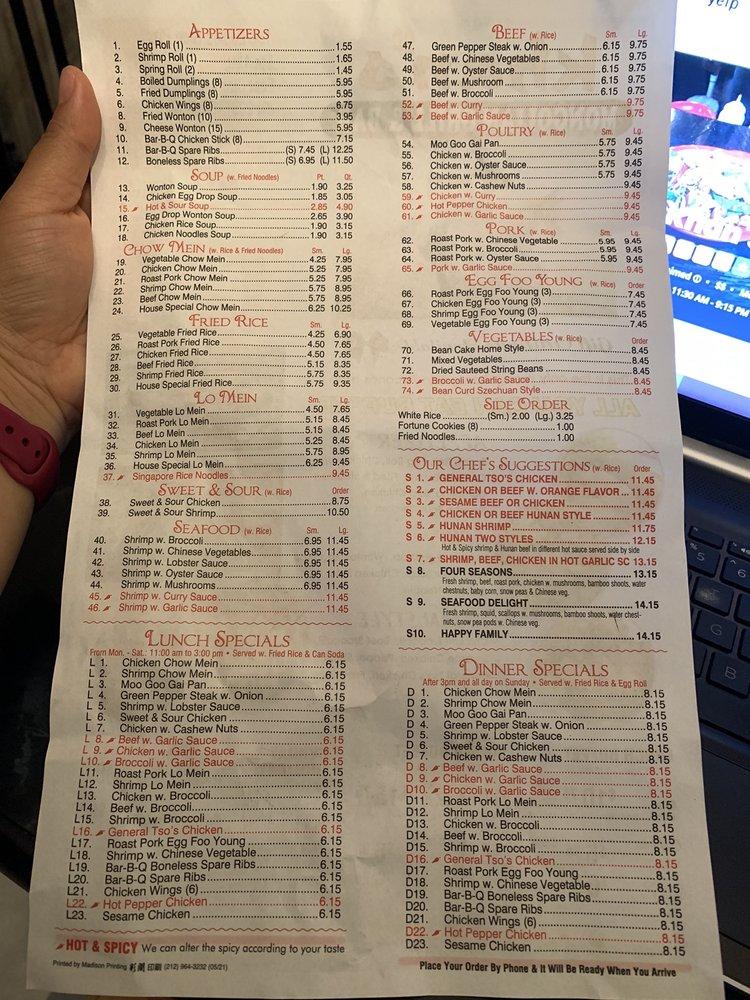 yelp
APPETIZERS
1. Egg Roll (1) 1.55
2. Shrimp Roll (1) 1.65
3. Spring Roll (2) 1.45
4. Boiled Dumplings (8) 5.95
5. Fried Dumplings (8) 5.95
6. Chicken Wings (8) 6.75
8. Fried Wonton (10) 3.95
9. Cheese Wonton (15) 5.95
10. Bar-B-Q Chicken Stick (8) 7.15
11. Bar-B-Q Spare Ribs (S) 7.45 (L) 12.25
12. Boneless Spare Ribs (S) 6.95 (L) 11.50
SOUP (w. Fried Noodles) Pt. Qt.
13. Wonton Soup 1.90 3.25
14. Chicken Egg Drop Soup 1.85 3.05
15. Hot & Sour Soup 2.85 4.90
16. Egg Drop Wonton Soup 2.65 3.90
17. Chicken Rice Soup 1.90 3.15
18. Chicken Noodles Soup 1.90 3.15
CHOW MEIN (w. Rice & Fried Noodles) Sm. Lg.
19. Vegetable Chow Mein 4.25 7.95
20. Chicken Chow Mein 5.25 7.95
21. Roast Pork Chow Mein 5.25 7.95
22. Shrimp Chow Mein 5.75 8.95
23. Beef Chow Mein 5.75 8.95
24. House Special Chow Mein 6.25 10.25
FRIED RICE Sm. Lg.
25. Vegetable Fried Rice 4.25 6.90
26. Roast Pork Fried Rice 4.50 7.65
27. Chicken Fried Rice 4.50 7.65
28. Beef Fried Rice 5.15 8.35
29. Shrimp Fried Rice 5.75 8.35
30. House Special Fried Rice 5.75 9.35
LO MEIN Sm. Lg.
31. Vegetable Lo Mein 4.50 7.65
32. Roast Pork Lo Mein 5.15 8.45
33. Beef Lo Mein 5.15 8.45
34. Chicken Lo Mein 5.25 8.45
35. Shrimp Lo Mein 5.75 8.95
36. House Special Lo Mein 6.25 9.45
37. Singapore Rice Noodles 9.45
SWEET & SOUR (w. Rice) Order
38. Sweet & Sour Chicken 8.75
39. Sweet & Sour Shrimp 10.50
SEAFOOD (w. Rice) Sm. Lg.
40. Shrimp w. Broccoli 6.95 11.45
41. Shrimp w. Chinese Vegetables 6.95 11.45
42. Shrimp w. Lobster Sauce 6.95 11.45
43. Shrimp w. Oyster Sauce 6.95 11.45
44. Shrimp w. Mushrooms 6.95 11.45
45. Shrimp w. Curry Sauce 11.45
46. Shrimp w. Garlic Sauce 11.45
BEEF (w. Rice) Sm. Lg.
47. Green Pepper Steak w. Onion 6.15 9.75
48. Beef w. Chinese Vegetables 6.15 9.75
49. Beef w. Oyster Sauce 6.15 9.75
50. Beef w. Mushroom 6.15 9.75
51. Beef w. Broccoli 6.15 9.75
52. Beef w. Curry 9.75
53. Beef w. Garlic Sauce 9.75
POULTRY (w. Rice) Sm. Lg.
54. Moo Goo Gai Pan 5.75 9.45
55. Chicken w. Broccoli 5.75 9.45
56. Chicken w. Oyster Sauce 5.75 9.45
57. Chicken w. Mushrooms 5.75 9.45
58. Chicken w. Cashew Nuts 9.45
59. Chicken w. Curry 9.45
60. Hot Pepper Chicken 9.45
61. Chicken w. Garlic Sauce 9.45
PORK (w. Rice) Sm. Lg.
62. Roast Pork w. Chinese Vegetable 5.95 9.45
63. Roast Pork w. Broccoli 5.95 9.45
64. Roast Pork w. Oyster Sauce 5.95 9.45
65. Pork w. Garlic Sauce 9.45
EGG FOO YOUNG (w. Rice) Order
66. Roast Pork Egg Foo Young (3) 7.45
67. Chicken Egg Foo Young (3) 7.45
68. Shrimp Egg Foo Young (3) 7.45
69. Vegetable Egg Foo Young (3) 7.45
VEGETABLES (w. Rice) Order
70. Bean Cake Home Style 8.45
71. Mixed Vegetables 8.45
72. Dried Sauteed String Beans 8.45
73. Broccoli w. Garlic Sauce 8.45
74. Bean Curd Szechuan Style 8.45
SIDE ORDER
White Rice (Sm.) 2.00 (Lg.) 3.25
Fortune Cookies (8) 1.00
Fried Noodles 1.00
OUR CHEF'S SUGGESTIONS (w. Rice) Order
S 1. GENERAL TSO'S CHICKEN 11.45
S 2. CHICKEN OR BEEF W. ORANGE FLAVOR 11.45
S 3. SESAME BEEF OR CHICKEN 11.45
S 4. CHICKEN OR BEEF HUNAN STYLE 11.45
S 5. HUNAN SHRIMP 11.75
S 6. HUNAN TWO STYLES 12.15
Hot & Spicy shrimp & Hunan beef in different hot sauce served side by side
S 7. SHRIMP, BEEF, CHICKEN IN HOT GARLIC SC 13.15
S 8. FOUR SEASONS 13.15
Fresh shrimp, beef, roast pork, chicken w. mushrooms, bamboo shoots, water
chestnuts, baby corn, snow peas & Chinese veg.
S 9. SEAFOOD DELIGHT 14.15
Fresh shrimp, squid, scallops w. mushrooms, bamboo shoots, water chest-
nuts, snow pea pods w. Chinese veg.
S10. HAPPY FAMILY 14.15
LUNCH SPECIALS
From Mon. - Sat.: 11:00 am to 3:00 pm • Served w. Fried Rice & Can Soda
L 1. Chicken Chow Mein 6.15
L 2. Shrimp Chow Mein 6.15
L 3. Moo Goo Gai Pan 6.15
L 4. Green Pepper Steak w. Onion 6.15
L 5. Shrimp w. Lobster Sauce 6.15
L 6. Sweet & Sour Chicken 6.15
L 7. Chicken w. Cashew Nuts 6.15
L 8. Beef w. Garlic Sauce 6.15
L 9. Chicken w. Garlic Sauce 6.15
L10. Broccoli w. Garlic Sauce 6.15
L11. Roast Pork Lo Mein 6.15
L12. Shrimp Lo Mein 6.15
L13. Chicken w. Broccoli 6.15
L14. Beef w. Broccoli 6.15
L15. Shrimp w. Broccoli 6.15
L16. General Tso's Chicken 6.15
L17. Roast Pork Egg Foo Young 6.15
L18. Shrimp w. Chinese Vegetable 6.15
L19. Bar-B-Q Boneless Spare Ribs 6.15
L20. Bar-B-Q Spare Ribs 6.15
L21. Chicken Wings (6) 6.15
L22. Hot Pepper Chicken 6.15
L23. Sesame Chicken 6.15
HOT & SPICY We can alter the spicy according to your taste
Printed by Madison Printing 印刷 (212) 964-3232 (05/21)
DINNER SPECIALS
After 3pm and all day on Sunday • Served w. Fried Rice & Egg Roll
D 1. Chicken Chow Mein 8.15
D 2. Shrimp Chow Mein 8.15
D 3. Moo Goo Gai Pan 8.15
D 4. Green Pepper Steak w. Onion 8.15
D 5. Shrimp w. Lobster Sauce 8.15
D 6. Sweet & Sour Chicken 8.15
D 7. Chicken w. Cashew Nuts 8.15
D 8. Beef w. Garlic Sauce 8.15
D 9. Chicken w. Garlic Sauce 8.15
D10. Broccoli w. Garlic Sauce 8.15
D11. Roast Pork Lo Mein 8.15
D12. Shrimp Lo Mein 8.15
D13. Chicken w. Broccoli 8.15
D14. Beef w. Broccoli 8.15
D15. Shrimp w. Broccoli 8.15
D16. General Tso's Chicken 8.15
D17. Roast Pork Egg Foo Young 8.15
D18. Shrimp w. Chinese Vegetable 8.15
D19. Bar-B-Q Boneless Spare Ribs 8.15
D20. Bar-B-Q Spare Ribs 8.15
D21. Chicken Wings (6) 8.15
D22. Hot Pepper Chicken 8.15
D23. Sesame Chicken 8.15
Place Your Order By Phone & It Will Be Ready When You Arrive
11:30 AM - 9:13 PM